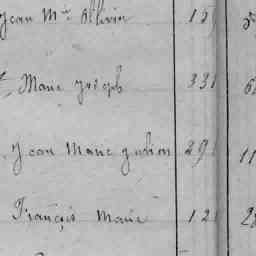 Jean Mie Ollivier 15
Marie Joseph 33
Jean Marie Julien 29 11
François Marie 12 2